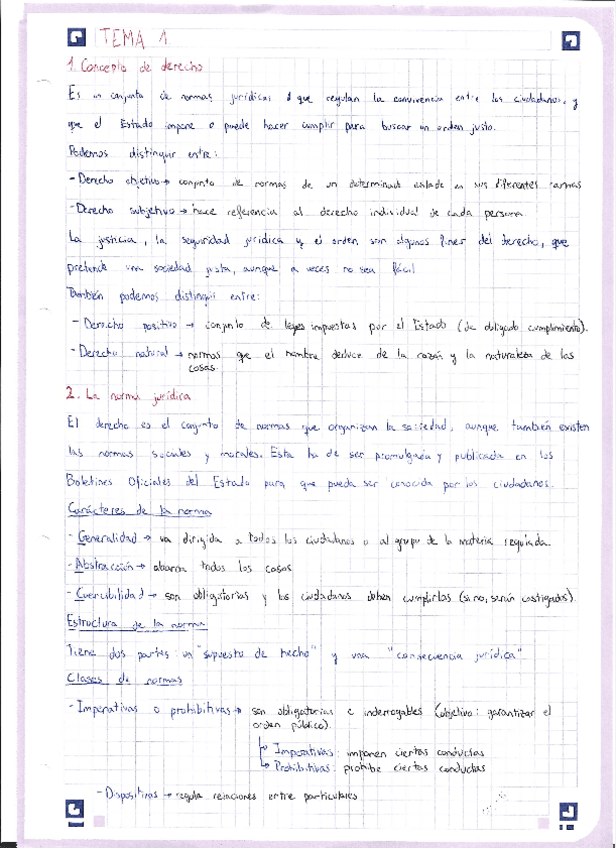 TEMA 1
1. Concepto de derecho
Es un conjunto de normas jurídicas que regulan la convivencia entre los ciudadanos, y
que el Estado impone o puede hacer cumplir para buscar un orden justo.
Podemos distinguir entre:
- Derecho objetivo → conjunto de normas de un determinado estado en sus diferentes ramas
- Derecho subjetivo → hace referencia al derecho individual de cada persona
La justicia, la seguridad jurídica y el orden son algunos fines del derecho, que
pretende una sociedad justa, aunque a veces no sea fácil
También podemos distinguir entre:
- Derecho positivo → conjunto de leyes impuestas por el Estado (de obligado cumplimiento).
- Derecho natural → normas que el hombre deduce de la razón y la naturaleza de las
cosas.
2. La norma jurídica
El derecho es el conjunto de normas que organizan la sociedad, aunque también existen
las normas sociales y morales. Esta ha de ser promulgada y publicada en los
Boletines Oficiales del Estado para que pueda ser conocida por los ciudadanos.
Carácteres de la norma
- Generalidad → va dirigida a todos los ciudadanos o al grupo de la materia regulada.
- Abstracción → abarca todos los casos
- Coercibilidad → son obligatorias y los ciudadanos deben cumplirlas (si no, serán castigados).
Estructura de la norma
Tiene dos partes: un "supuesto de hecho" y una "consecuencia jurídica"
Clases de normas
- Imperativas o prohibitivas → son obligatorias e inderrogables (objetivo: garantizar el
orden público).
↳ Imperativas: imponen ciertas conductas
↳ Prohibitivas: prohibe ciertas conductas
- Dispositivas → regula relaciones entre particulares